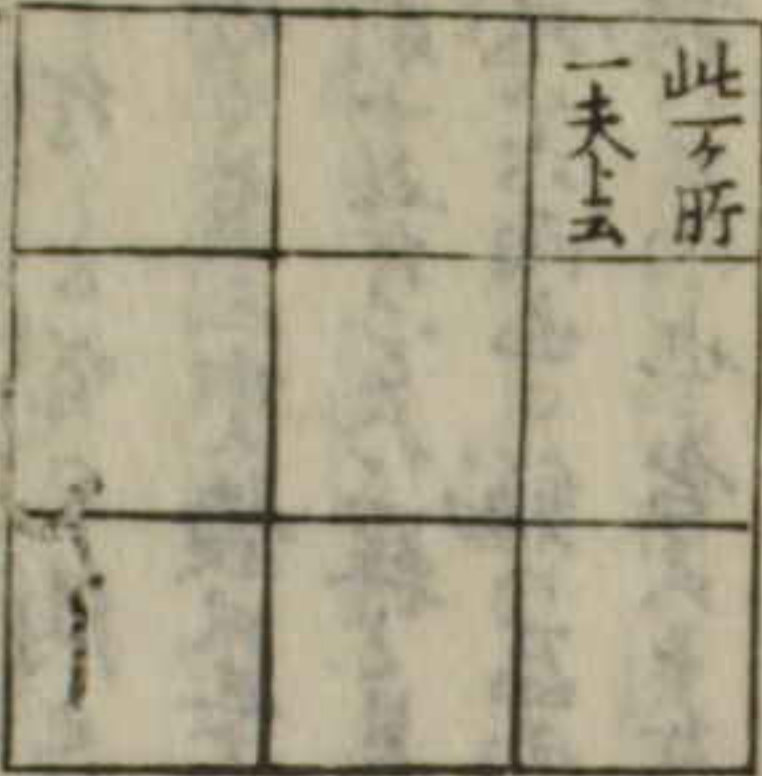 此一ケ所
一夫ト云